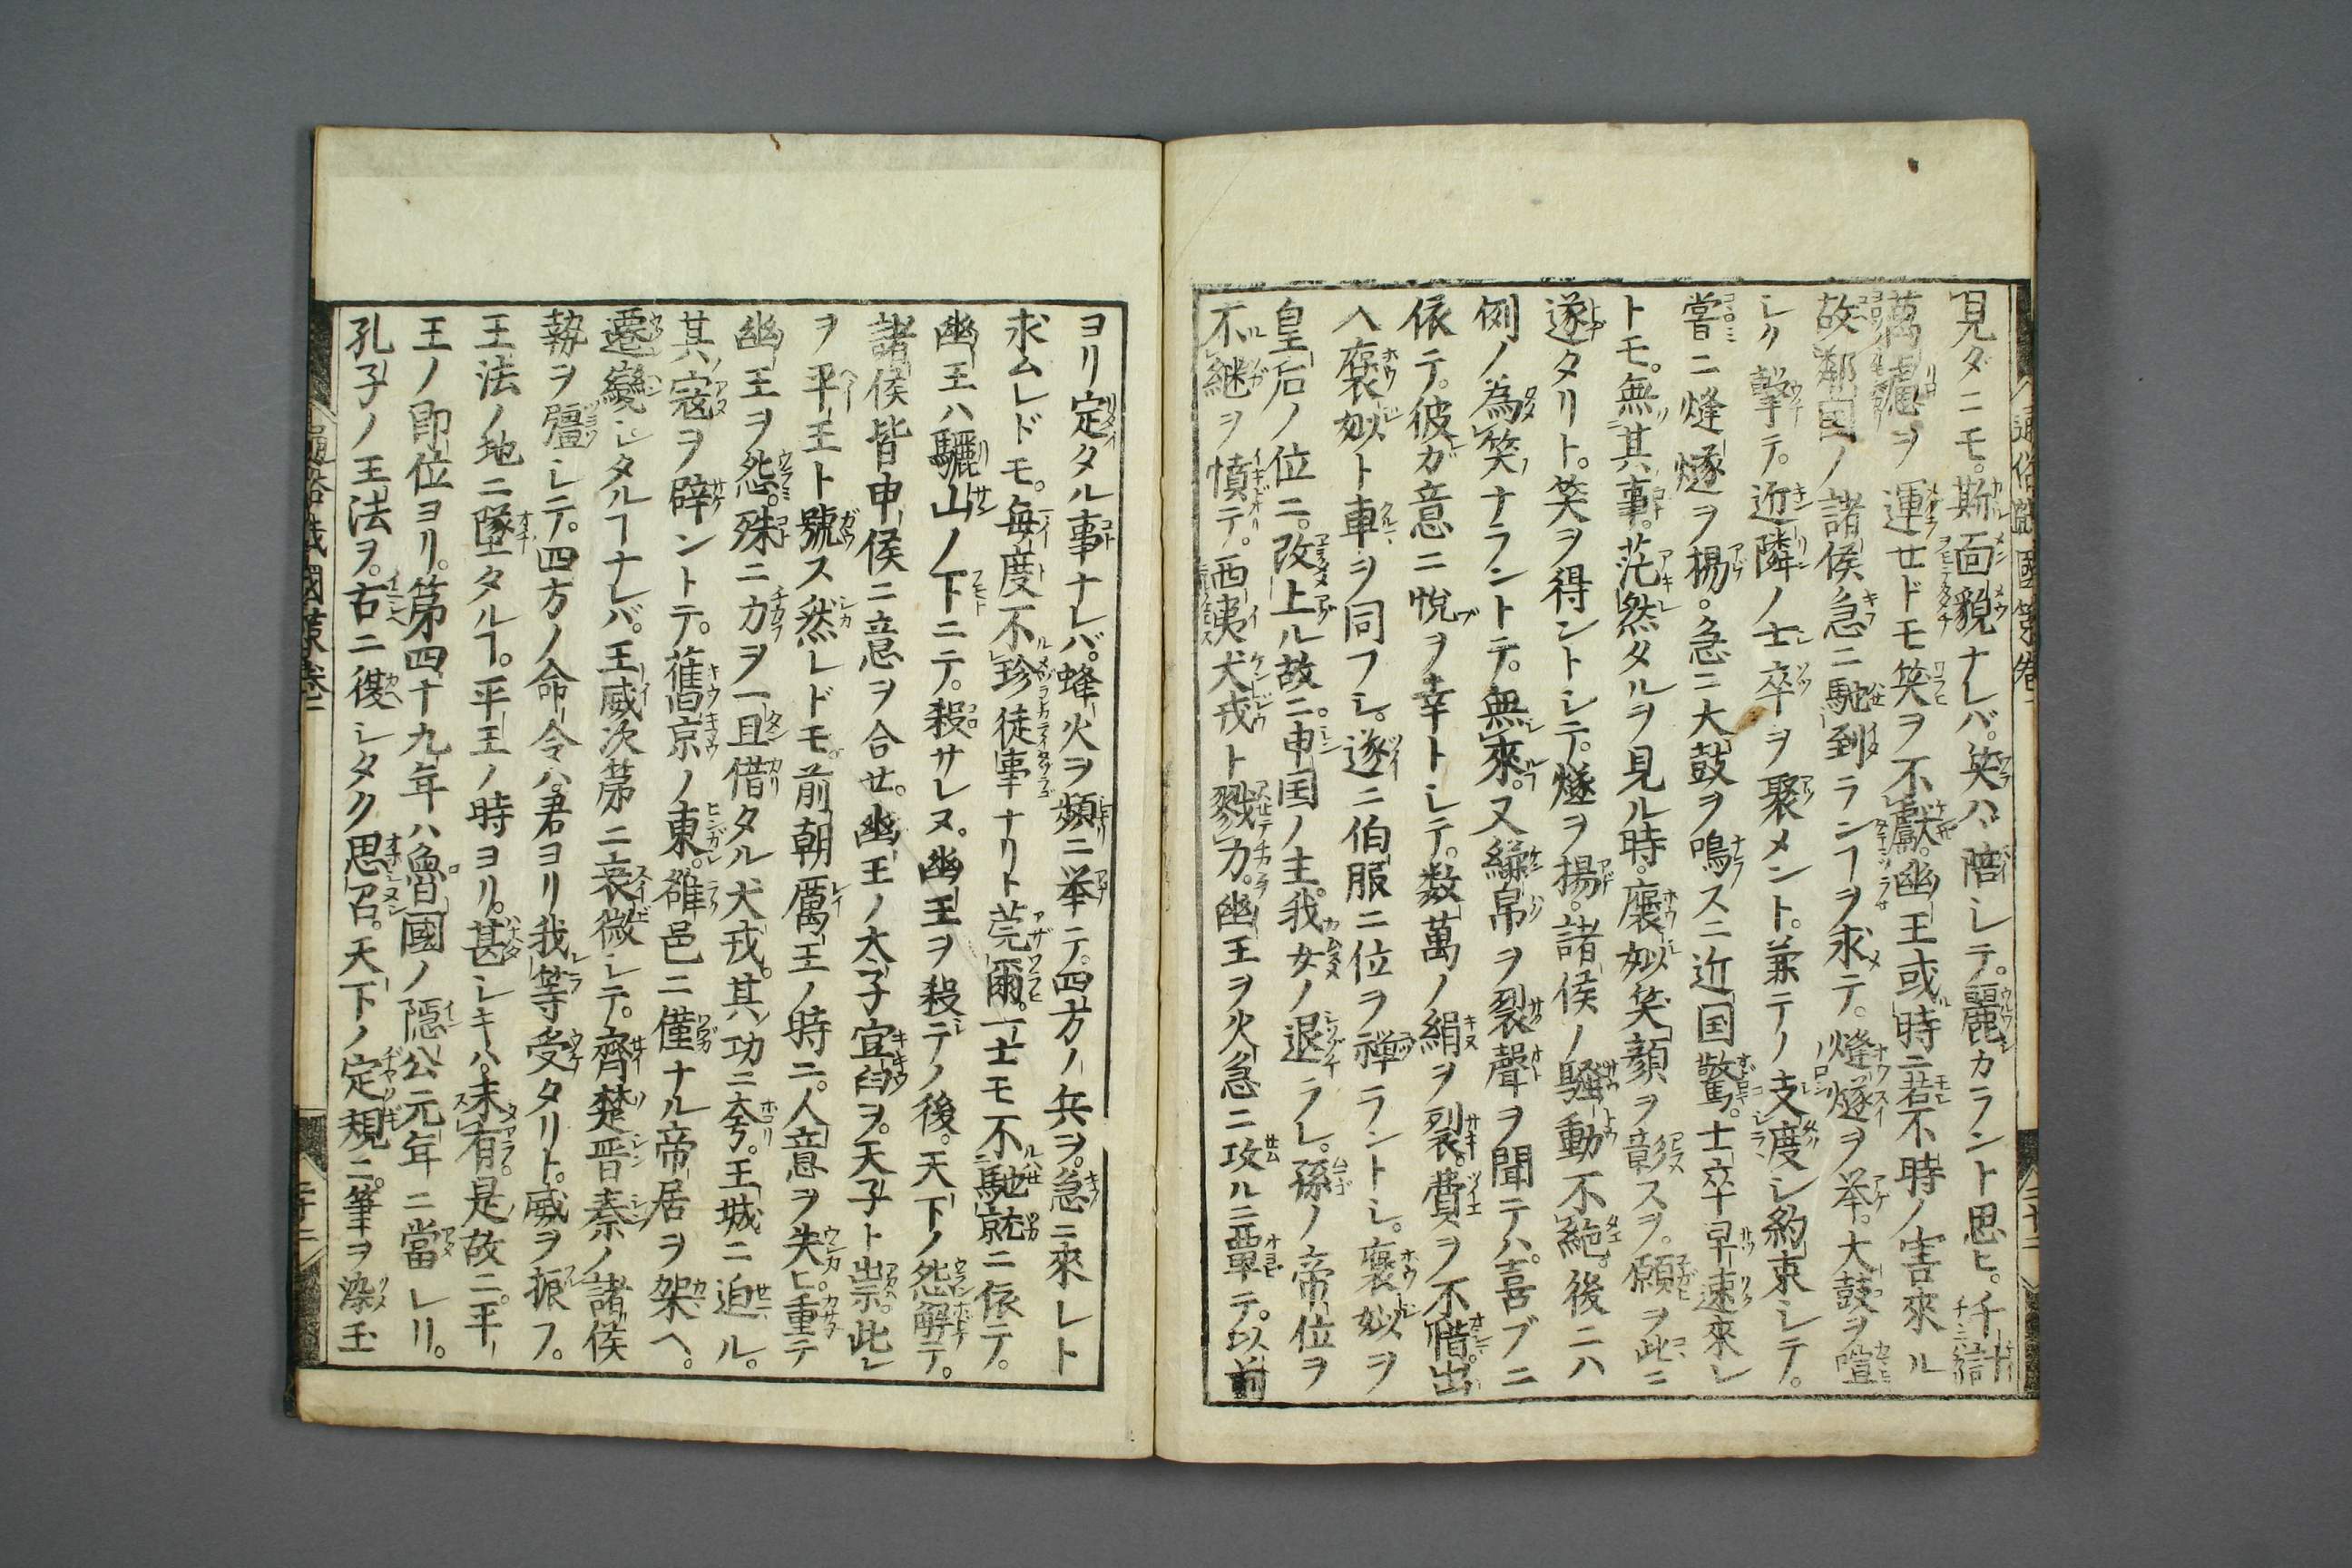 見ダニモ。斯面貌ナレバ。笑ハヾ陪シテ。麗カラント思ヒ。千計
萬慮ヲ運セドモ笑ヲ不獻。幽王或時ニ若不時ノ害來ル
故鄰国ノ諸侯急ニ馳到ランヿヲ求テ。烽燧ヲ挙。大鼓ヲ喧
シク擊テ。近隣ノ士卒ヲ聚メント。兼テノ支度シ約束シテ。
嘗ニ烽燧ヲ揚。急ニ大鼓ヲ鳴スニ近国驚。士卒早速來レ
トモ。無其事。茫然タルヲ見ル時。褒姒笑顔ヲ彰スヲ。願ヲ此ニ
遂タリト。笑ヲ得ントシテ。燧ヲ揚。諸侯ノ騒動不絶。後ニハ
例ノ為笑ナラントテ。無來。又繰帛ヲ裂聲ヲ聞テハ。喜ブニ
依テ。彼ガ意ニ悦ヲ幸トシテ。数萬ノ絹ヲ裂。費ヲ不惜。出
入褒姒ト車ヲ同フシ。遂ニ伯服ニ位ヲ禅ラントシ。褒姒ヲ
皇后ノ位ニ。改上ル故ニ。申国ノ主。我女ノ退ラレ。孫ノ帝位ヲ
不継ヲ憤テ。西夷犬戎ト戮力。幽王ヲ火急ニ攻ルニ覃テ。以前
ヨリ定タル事ナレバ。蜂火ヲ頻ニ挙テ。四方ノ兵ヲ。急ニ來レト
求ムレドモ。毎度不珍徒事ナリト莞爾。一士モ不馳就ニ依テ。
幽王ハ驪山ノ下ニテ。殺サレヌ。幽王ヲ殺テノ後。天下ノ怨解テ。
諸侯皆申侯ニ意ヲ合セ。幽王ノ太子宜臼ヲ。天子ト崇。此レ
ヲ平王ト號ス然レドモ。前朝厲王ノ時ニ。人意ヲ失ヒ。重テ
幽王ヲ怨。殊ニ力ヲ一旦借タル犬戎。其功ニ夸。王城ニ迫ル。
其寇ヲ辟ントテ。舊京ノ東。雒邑ニ僅ナル帝居ヲ架ヘ。
遷變シタルヿナレバ。王威次第ニ衰微シテ。齊楚晋秦ノ諸侯
勢ヲ彊シテ。四方ノ命令ハ。君ヨリ我等受タリト。威ヲ振フ。
王法ノ地ニ墜タルヿ。平王ノ時ヨリ。甚シキハ。未有。是故ニ。平
王ノ即位ヨリ。第四十九年ハ魯國ノ隠公元年ニ當レリ。
孔子ノ王法ヲ。古ニ復シタク思召。天下ノ定規ニ。筆ヲ染玉